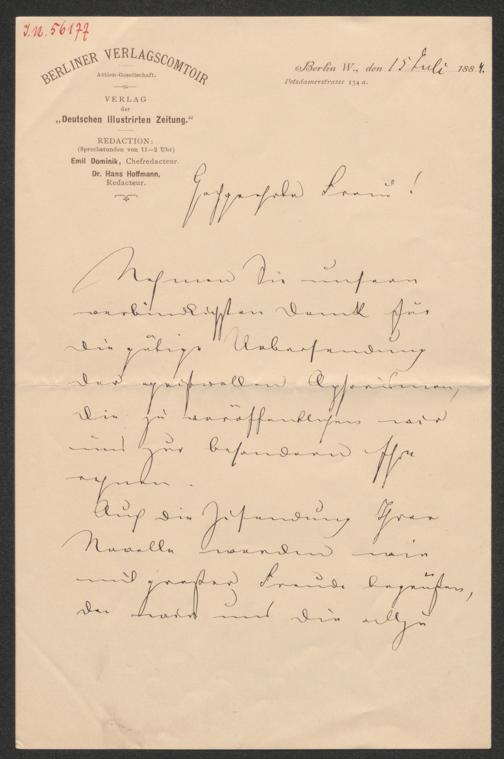 J.N. 56177
BERLINER VERLAGSCOMTOIR
Actien-Gesellschaft.
VERLAG
der
„Deutschen Illustrirten Zeitung."
REDACTION:
(Sprechstunden von 11—2 Uhr)
Emil Dominik, Chefredacteur.
Dr. Hans Hoffmann,
Redacteur.
Berlin W., den 15 Juli 1884.
Potsdamerstrasse 134 a.
Hochgeehrte Frau!
Nehmen Sie unsern
verbindlichsten Dank für
die gütige Uebersendung
der geistvollen Aphorismen,
die zu veröffentlichen wir
uns zur besondern Ehre
rechnen.
Auch die Zusendung Ihrer
Novelle werden wir
mit großer Freude begrüßen,
da wir uns die